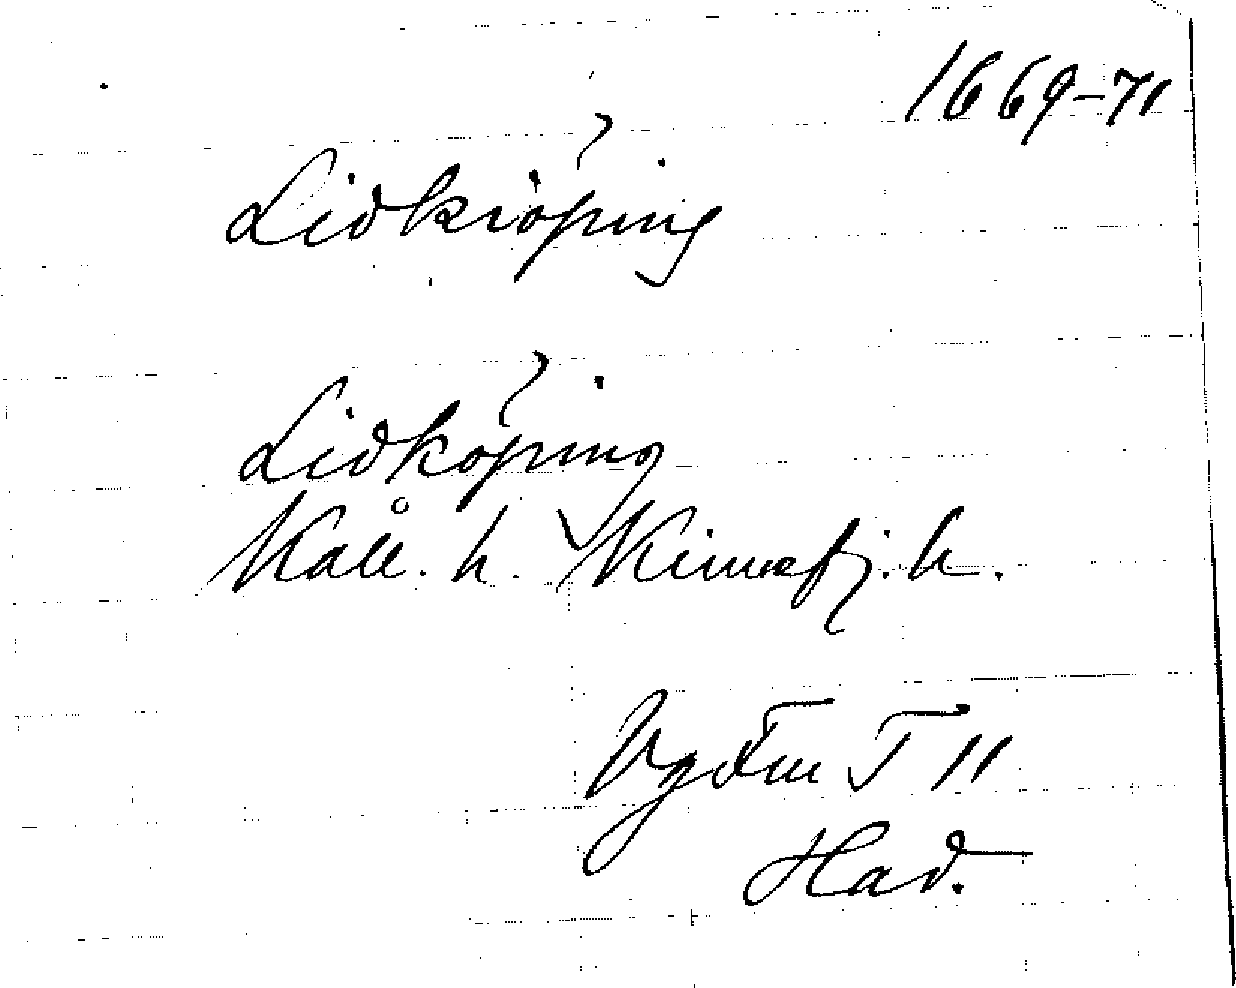 1669-71
Lidkiöping
Lidköping
Kåll. h. Kinnefj. h.
VgFm T 11
Had.